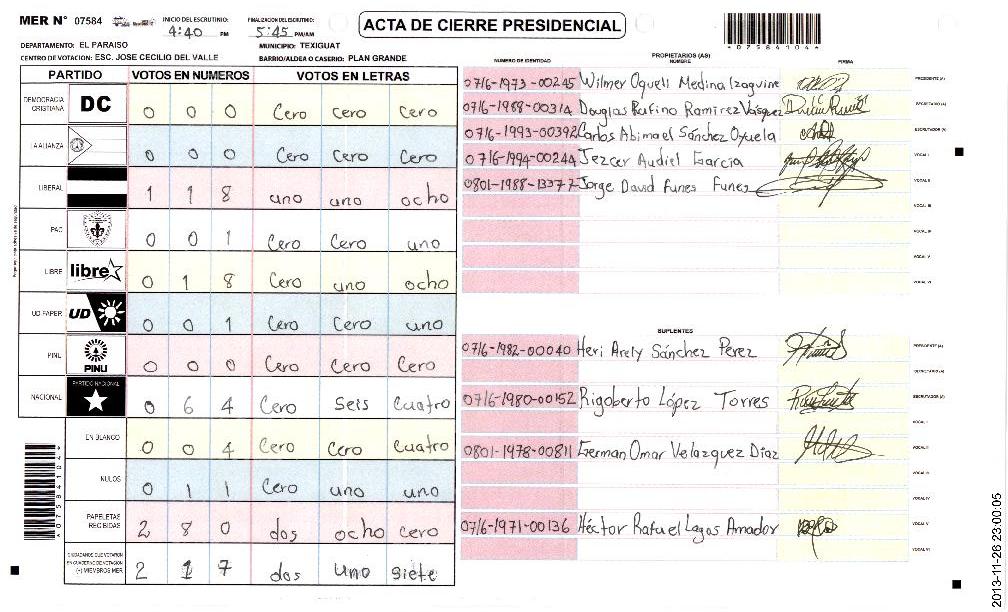 MER N° 07584
INICIO DEL ESCRUTINIO: 4:40 PM
FINALIZACION DEL ESCRUTINIO: 5:45 PM/AM
ACTA DE CIERRE PRESIDENCIAL
*07584104*
DEPARTAMENTO: EL PARAISO
MUNICIPIO: TEXIGUAT
CENTRO DE VOTACION: ESC. JOSE CECILIO DEL VALLE
BARRIO/ALDEA O CASERIO: PLAN GRANDE
PARTIDO VOTOS EN NUMEROS VOTOS EN LETRAS
DEMOCRACIA CRISTIANA DC 0 0 0 Cero Cero Cero
LA ALIANZA 0 0 0 Cero Cero Cero
LIBERAL 1 1 8 uno uno ocho
PAC 0 0 1 Cero Cero uno
LIBRE libre 0 1 8 Cero uno ocho
UD FAPER UD 0 0 1 Cero Cero uno
PINU PINU 0 0 0 Cero Cero Cero
NACIONAL PARTIDO NACIONAL 0 6 4 Cero seis cuatro
EN BLANCO 0 0 4 Cero Cero Cuatro
NULOS 0 1 1 Cero uno uno
PAPELETAS RECIBIDAS 2 8 0 dos ocho cero
CIUDADANOS QUE VOTARON EN CUADERNO DE VOTACION (+) MIEMBROS MER 2 1 7 dos uno siete
*07584104*
PROPIETARIOS (AS)
NUMERO DE IDENTIDAD NOMBRE FIRMA
0716-1973-00245 Wilmer Oquell Medina Izaguirre PRESIDENTE (A)
0716-1988-00314 Douglas Rufino Ramirez Vasquez SECRETARIO (A)
0716-1993-00392 Carlos Abimael Sánchez Oyuela ESCRUTADOR (A)
0716-1994-00244 Jezcer Audiel Garcia VOCAL I
0801-1988-13377 Jorge David Funes Funes VOCAL II
VOCAL III
VOCAL IV
VOCAL V
VOCAL VI
SUPLENTES
0716-1982-00040 Heri Arely Sánchez Perez PRESIDENTE (A)
SECRETARIO (A)
0716-1980-00152 Rigoberto López Torres ESCRUTADOR (A)
VOCAL I
0801-1978-00811 German Omar Velazquez Diaz VOCAL II
VOCAL III
VOCAL IV
0716-1971-00136 Héctor Rafael Lagos Amador VOCAL V
VOCAL VI
2013-11-26 23:00:05